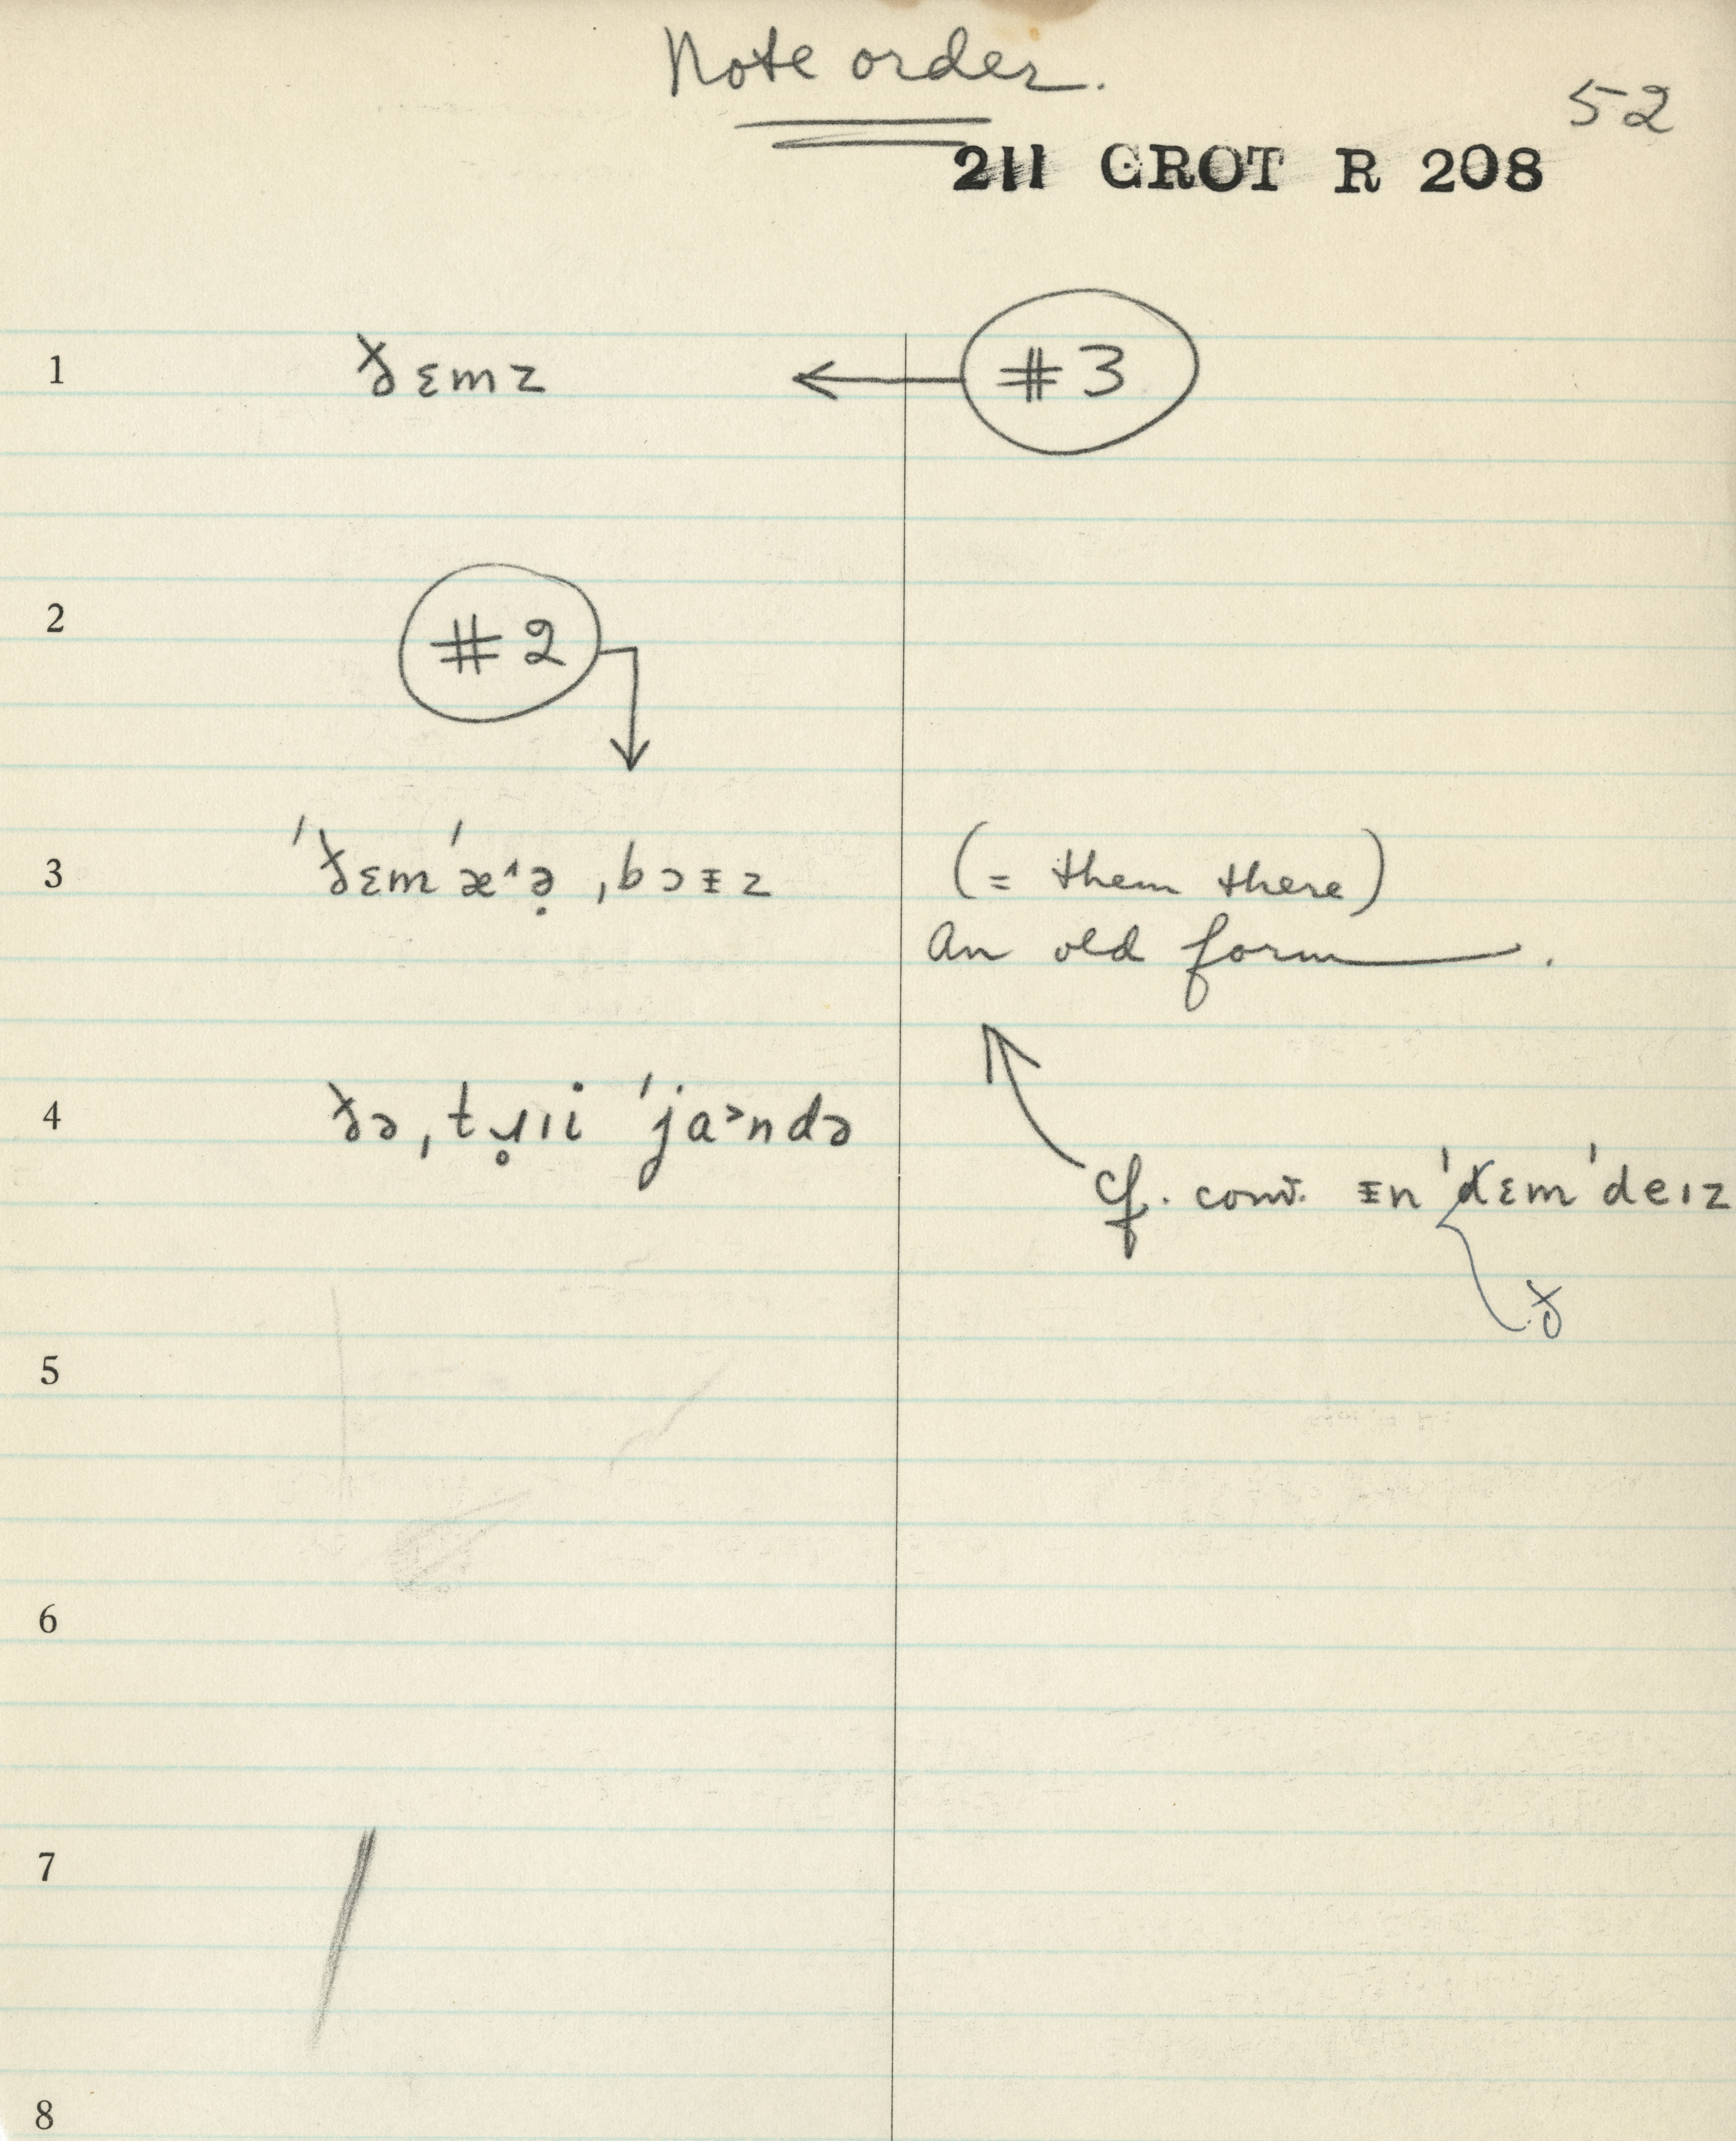 Note order.
52
211 GROT R 208
1 ð̵ɛmz ← #3
2 #2
3 ˈðɛmˈæ˄ə̣ ˌbɔᵻz (= them there)
An old form.
4 ðəˌtɹ̥ɪi ˈja˃ndə
cf. conv. ᵻnˈdɛmˈdeɪz
ð
5
6
7
8